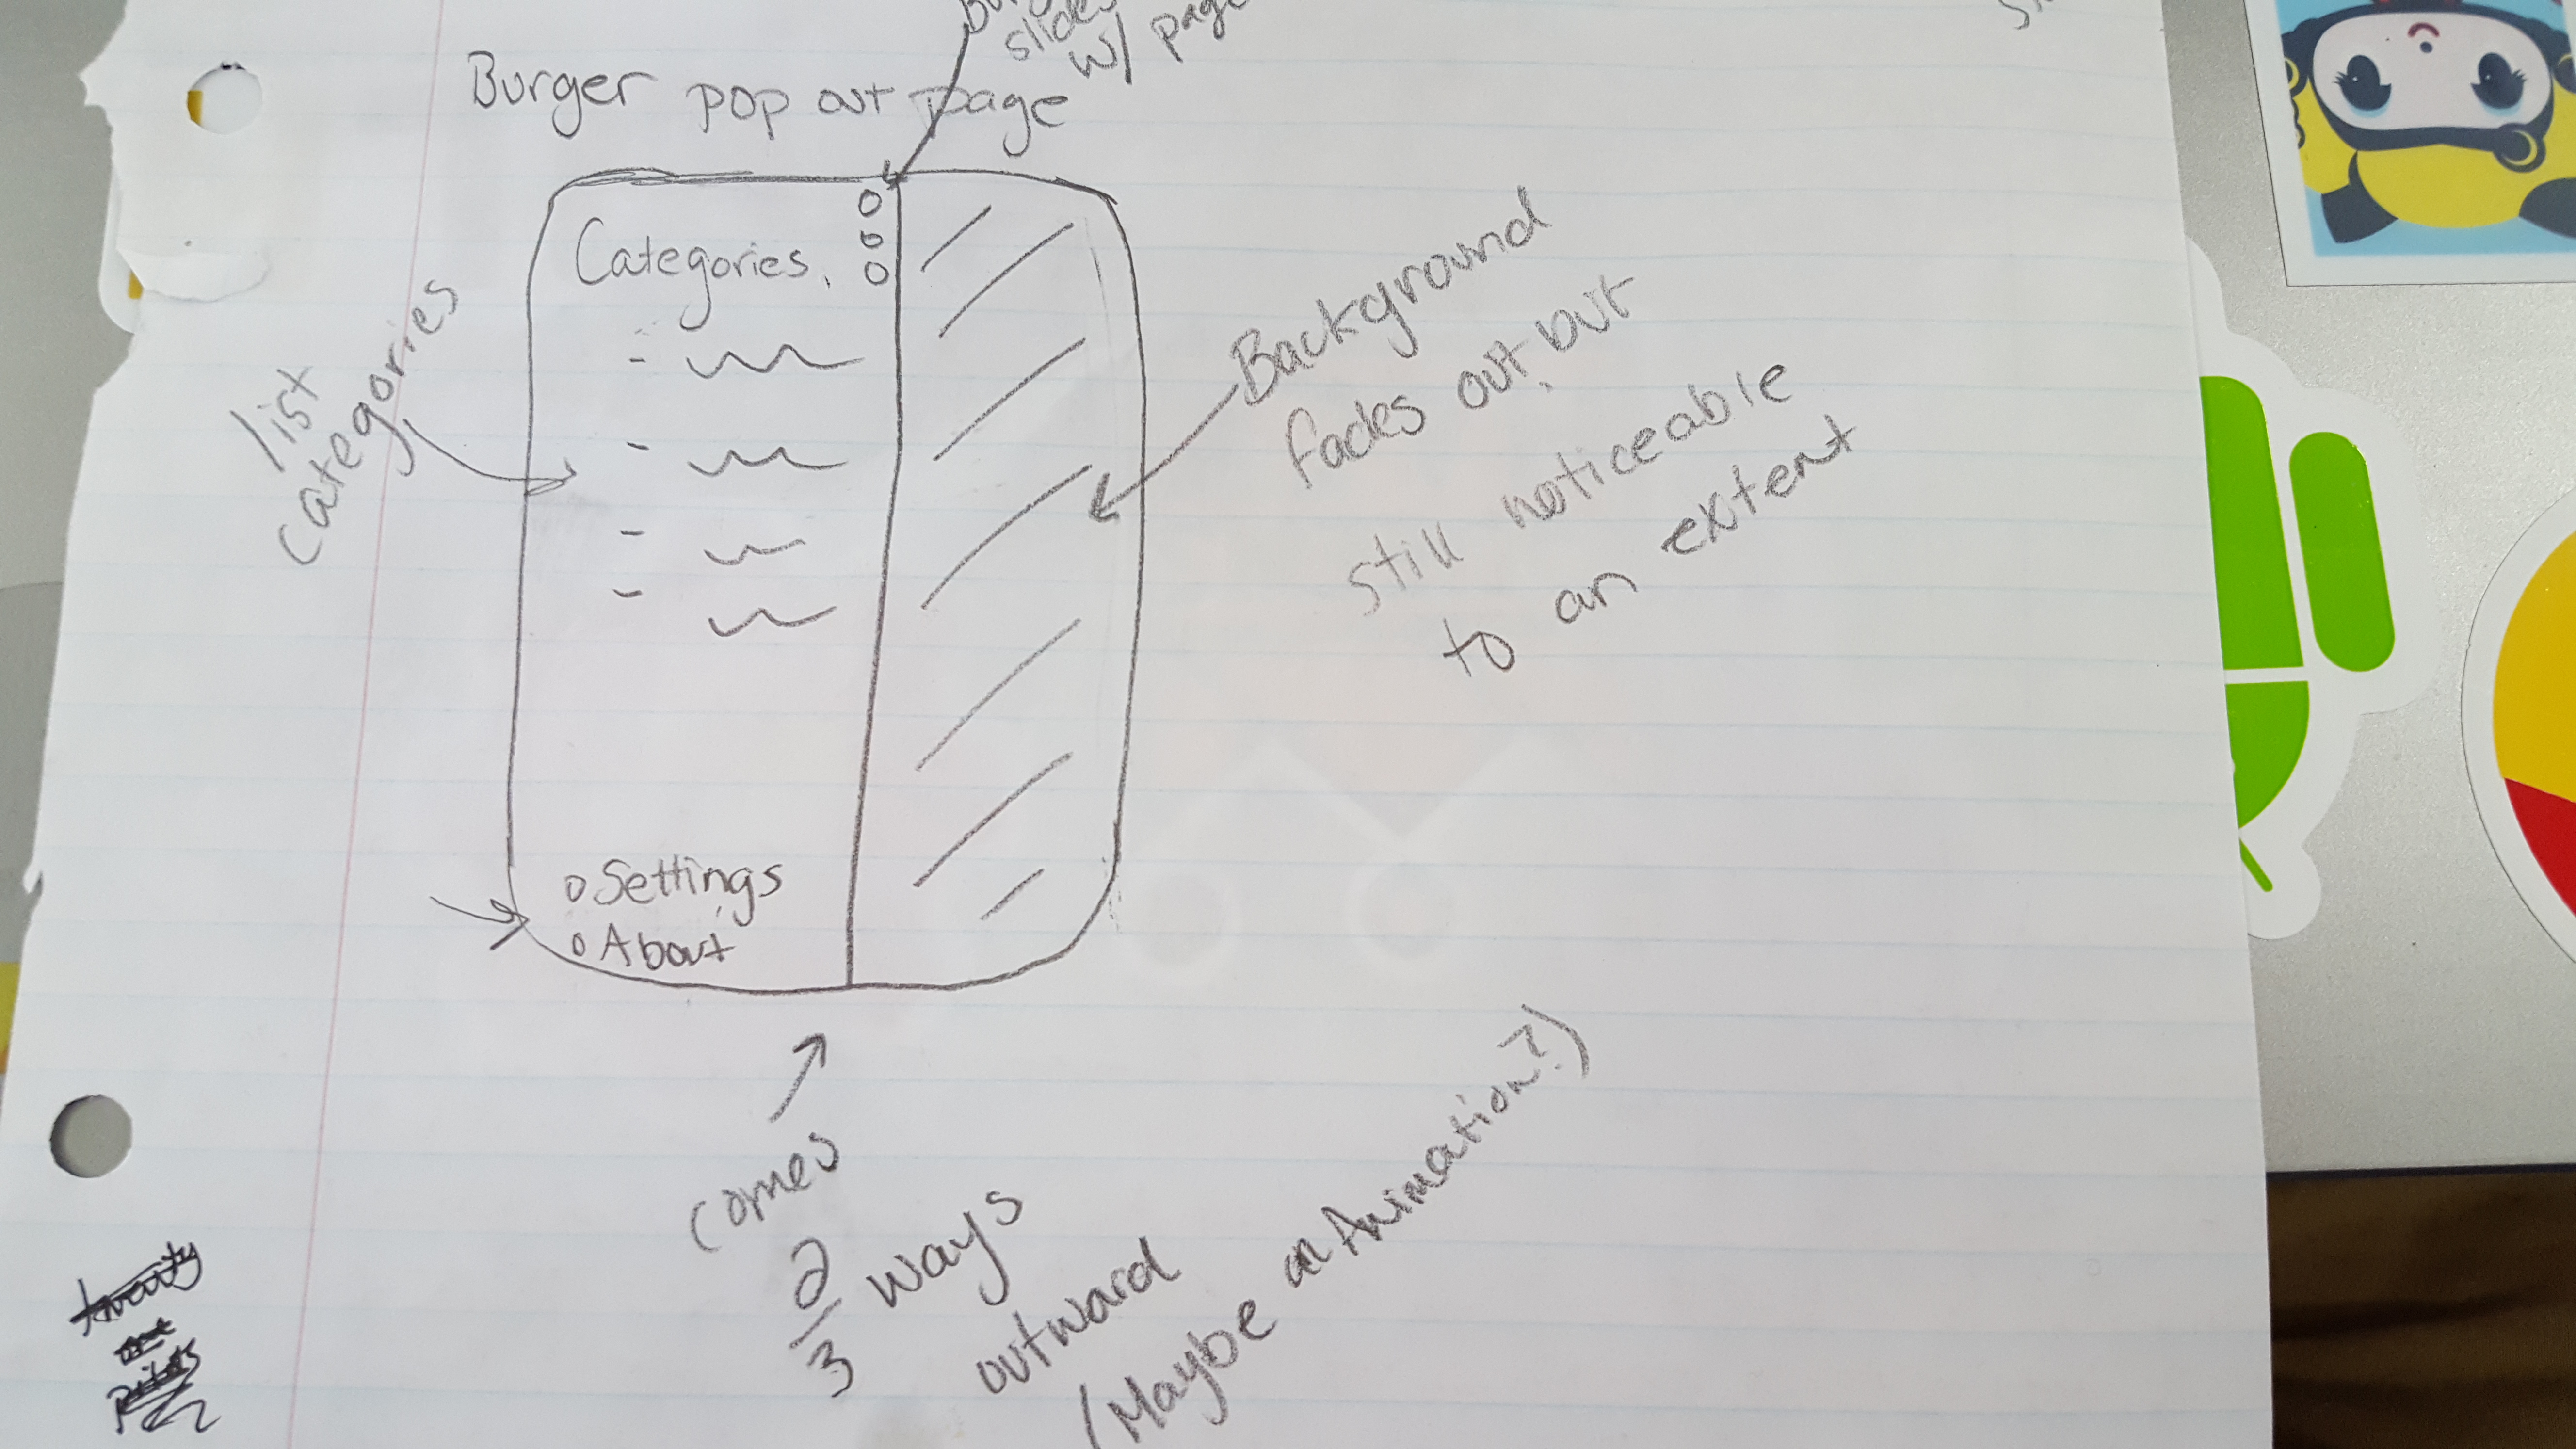 slides
w/ page
Burger pop out page
Categories
list
categories
Background
fades out, but
still noticeable
to an extent
Settings
About
comes
2/3 ways
outward
(Maybe an Animation?)